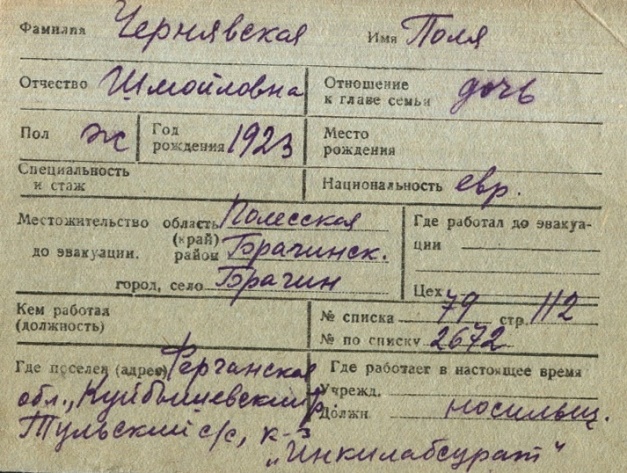 Фамилия Чернявская Имя Поля
Отчество Шмойловна Отношение к главе семьи дочь
Пол ж Год рождения 1923 Место рождения
Специальность и стаж Национальность евр.
Местожительство область Полесская Где работал до эвакуа-
(край) ции
до эвакуации. район Брагинск.
город, село Брагин Цех
Кем работал № списка 79 стр. 112
(должность) № по списку 2672
Где поселен (адрес) Ферганская Где работает в настоящее время
обл., Куйбышевский р Учрежд.
Тульский с/с, к-з Должн носильщ.
„Инкилабсурат"